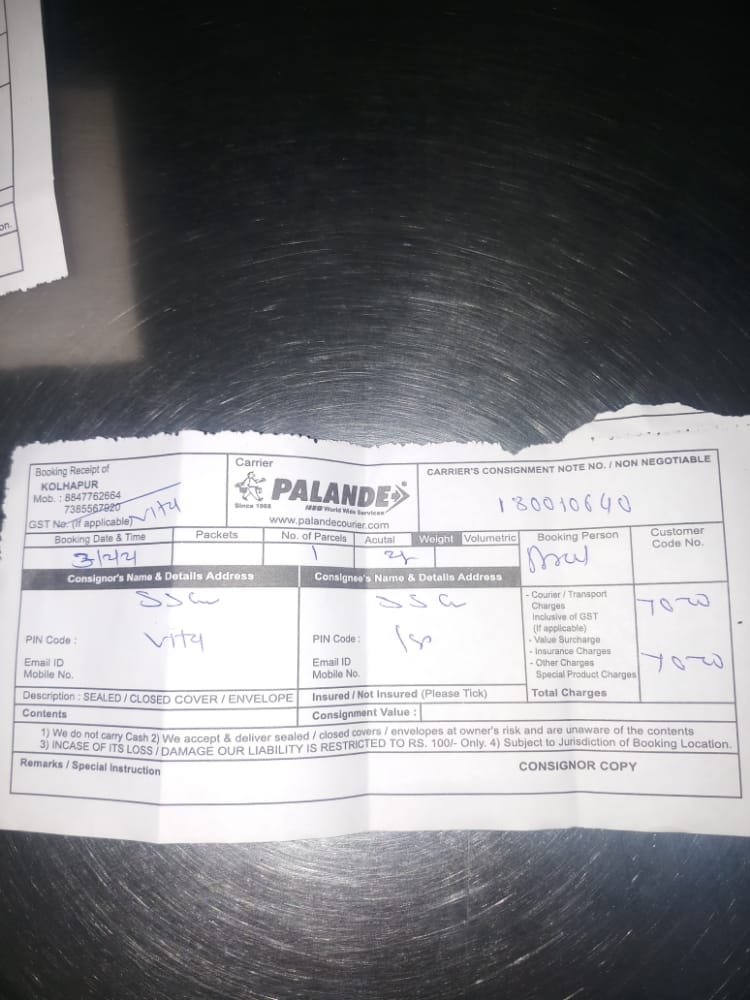 on.
Booking Receipt of
KOLHAPUR
Mob. : 8847762664
7385567920
GST No. (If applicable) Vita
Carrier
PALANDE
Since 1968 World Wide Services
www.palandecourier.com
CARRIER'S CONSIGNMENT NOTE NO. / NON NEGOTIABLE
180010640
Booking Date & Time Packets No. of Parcels Acutal Weight Volumetric Booking Person Customer Code No.
1
Consignor's Name & Details Address
PIN Code : Vita
Email ID
Mobile No.
Consignee's Name & Details Address
PIN Code :
Email ID
Mobile No.
- Courier / Transport
Charges
Inclusive of GST
(If applicable)
- Value Surcharge
- Insurance Charges
- Other Charges
Special Product Charges
Total Charges
Description : SEALED / CLOSED COVER / ENVELOPE
Insured / Not Insured (Please Tick)
Contents
Consignment Value :
1) We do not carry Cash 2) We accept & deliver sealed / closed covers / envelopes at owner's risk and are unaware of the contents
3) INCASE OF ITS LOSS / DAMAGE OUR LIABILITY IS RESTRICTED TO RS. 100/- Only. 4) Subject to Jurisdiction of Booking Location.
Remarks / Special Instruction
CONSIGNOR COPY